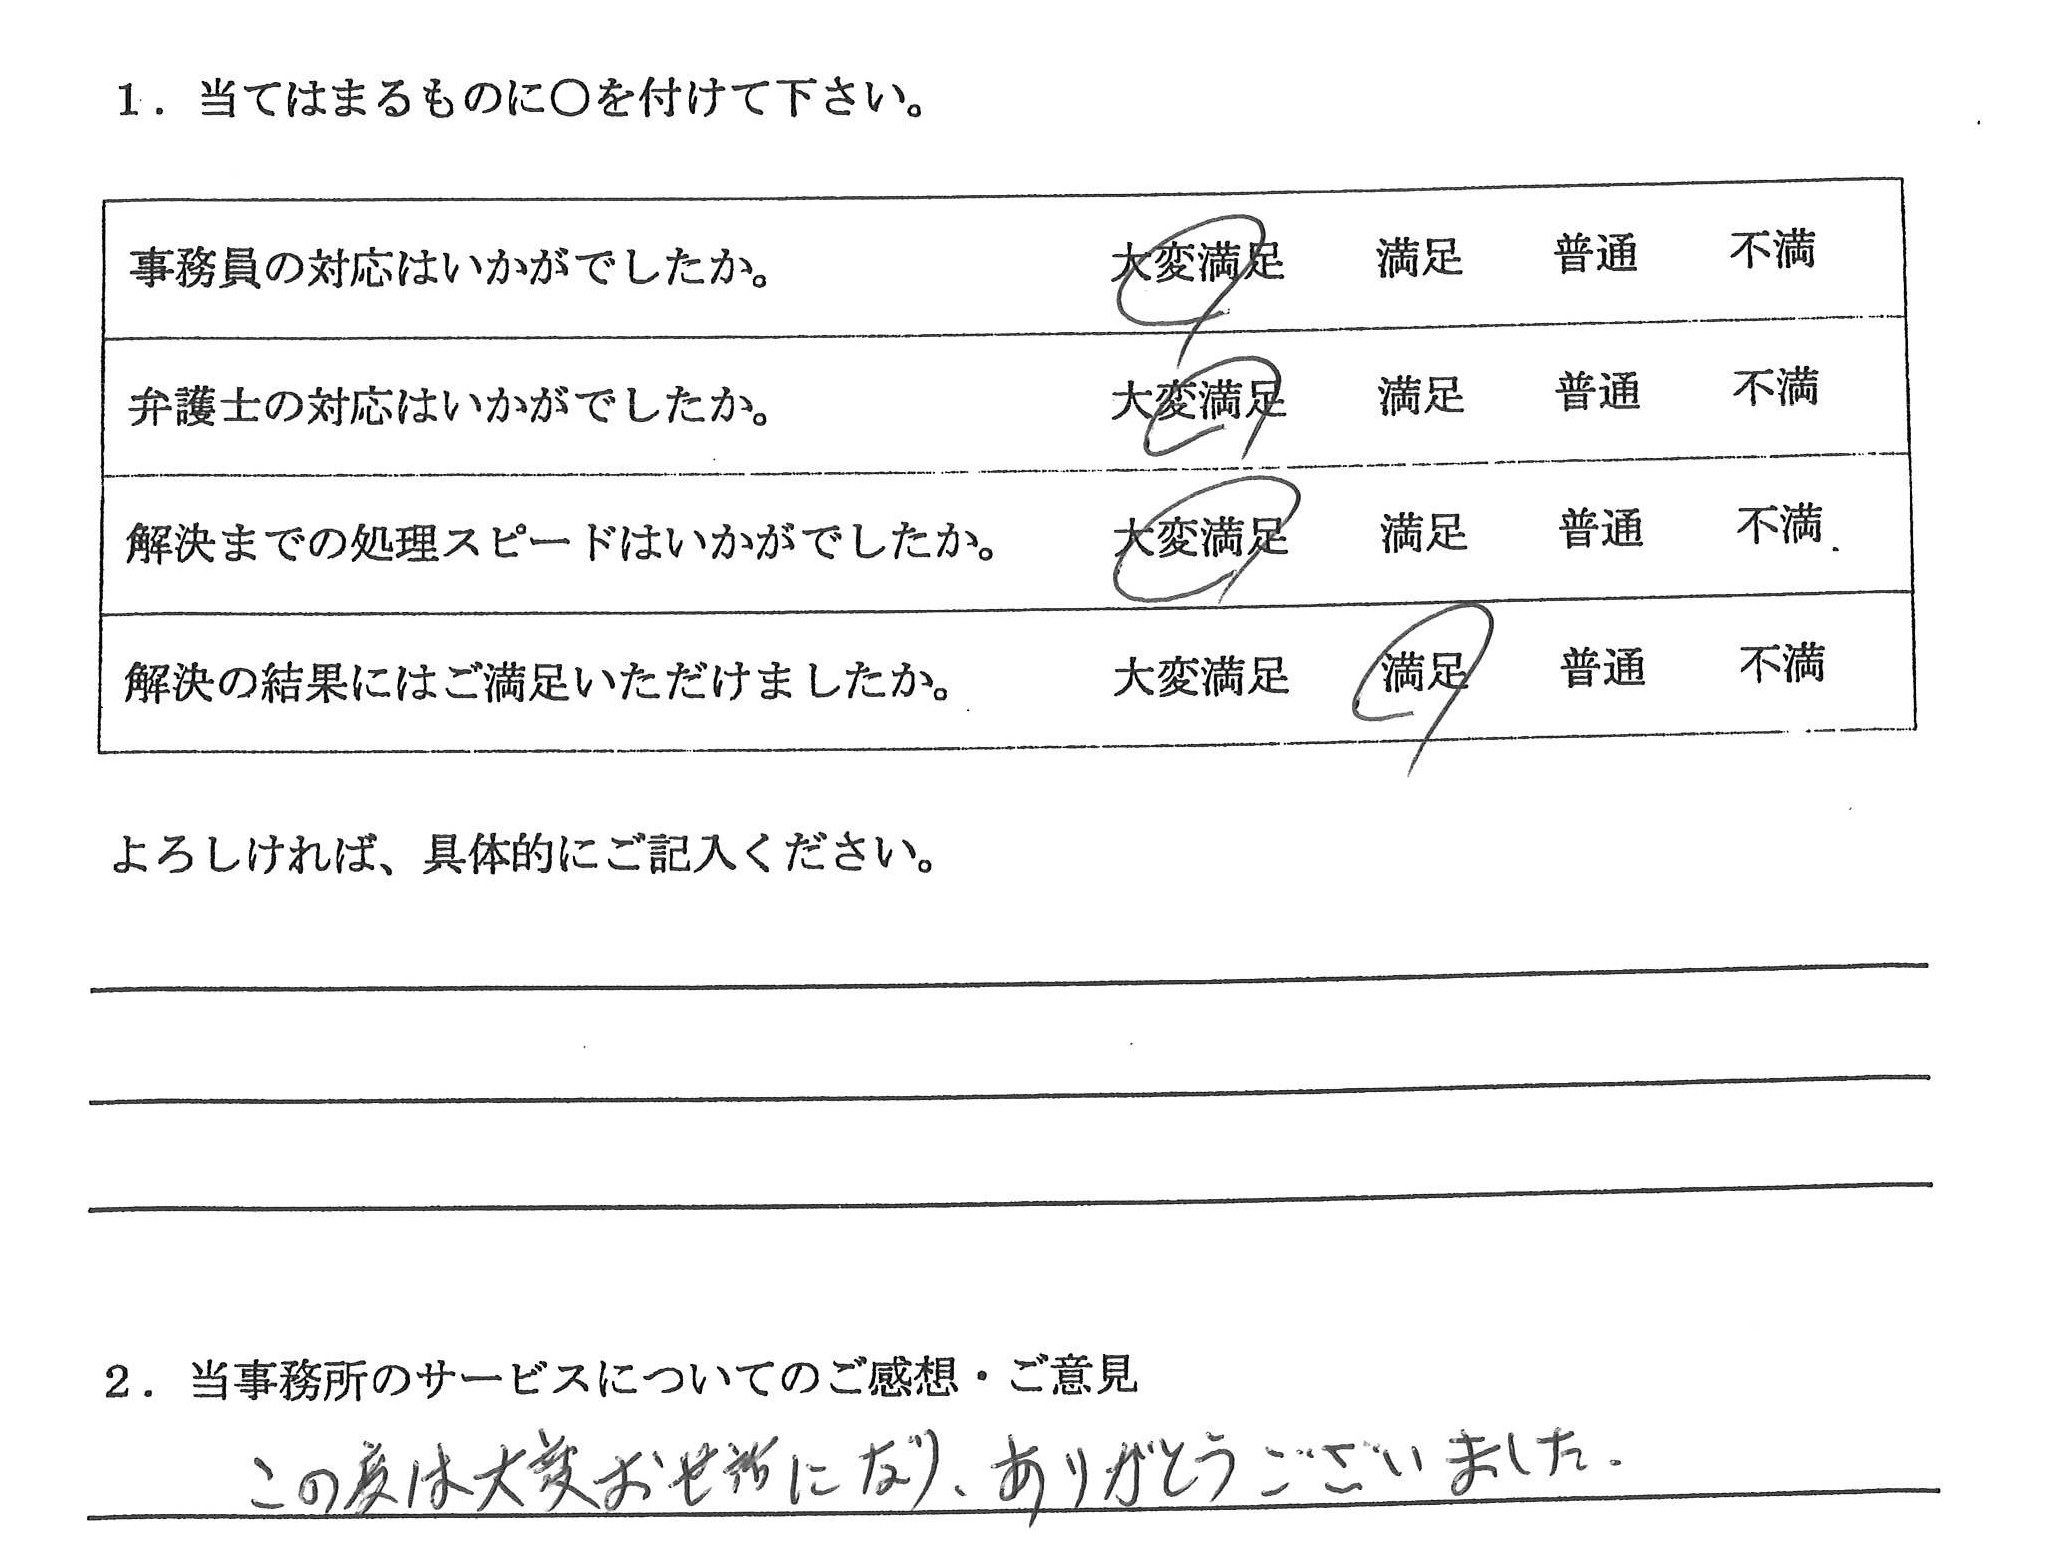 1．当てはまるものに〇を付けて下さい。
事務員の対応はいかがでしたか。 大変満足 満足 普通 不満
弁護士の対応はいかがでしたか。 大変満足 満足 普通 不満
解決までの処理スピードはいかがでしたか。 大変満足 満足 普通 不満
解決の結果にはご満足いただけましたか。 大変満足 満足 普通 不満
よろしければ、具体的にご記入ください。
2．当事務所のサービスについてのご感想・ご意見
この度は大変お世話になり、ありがとうございました.